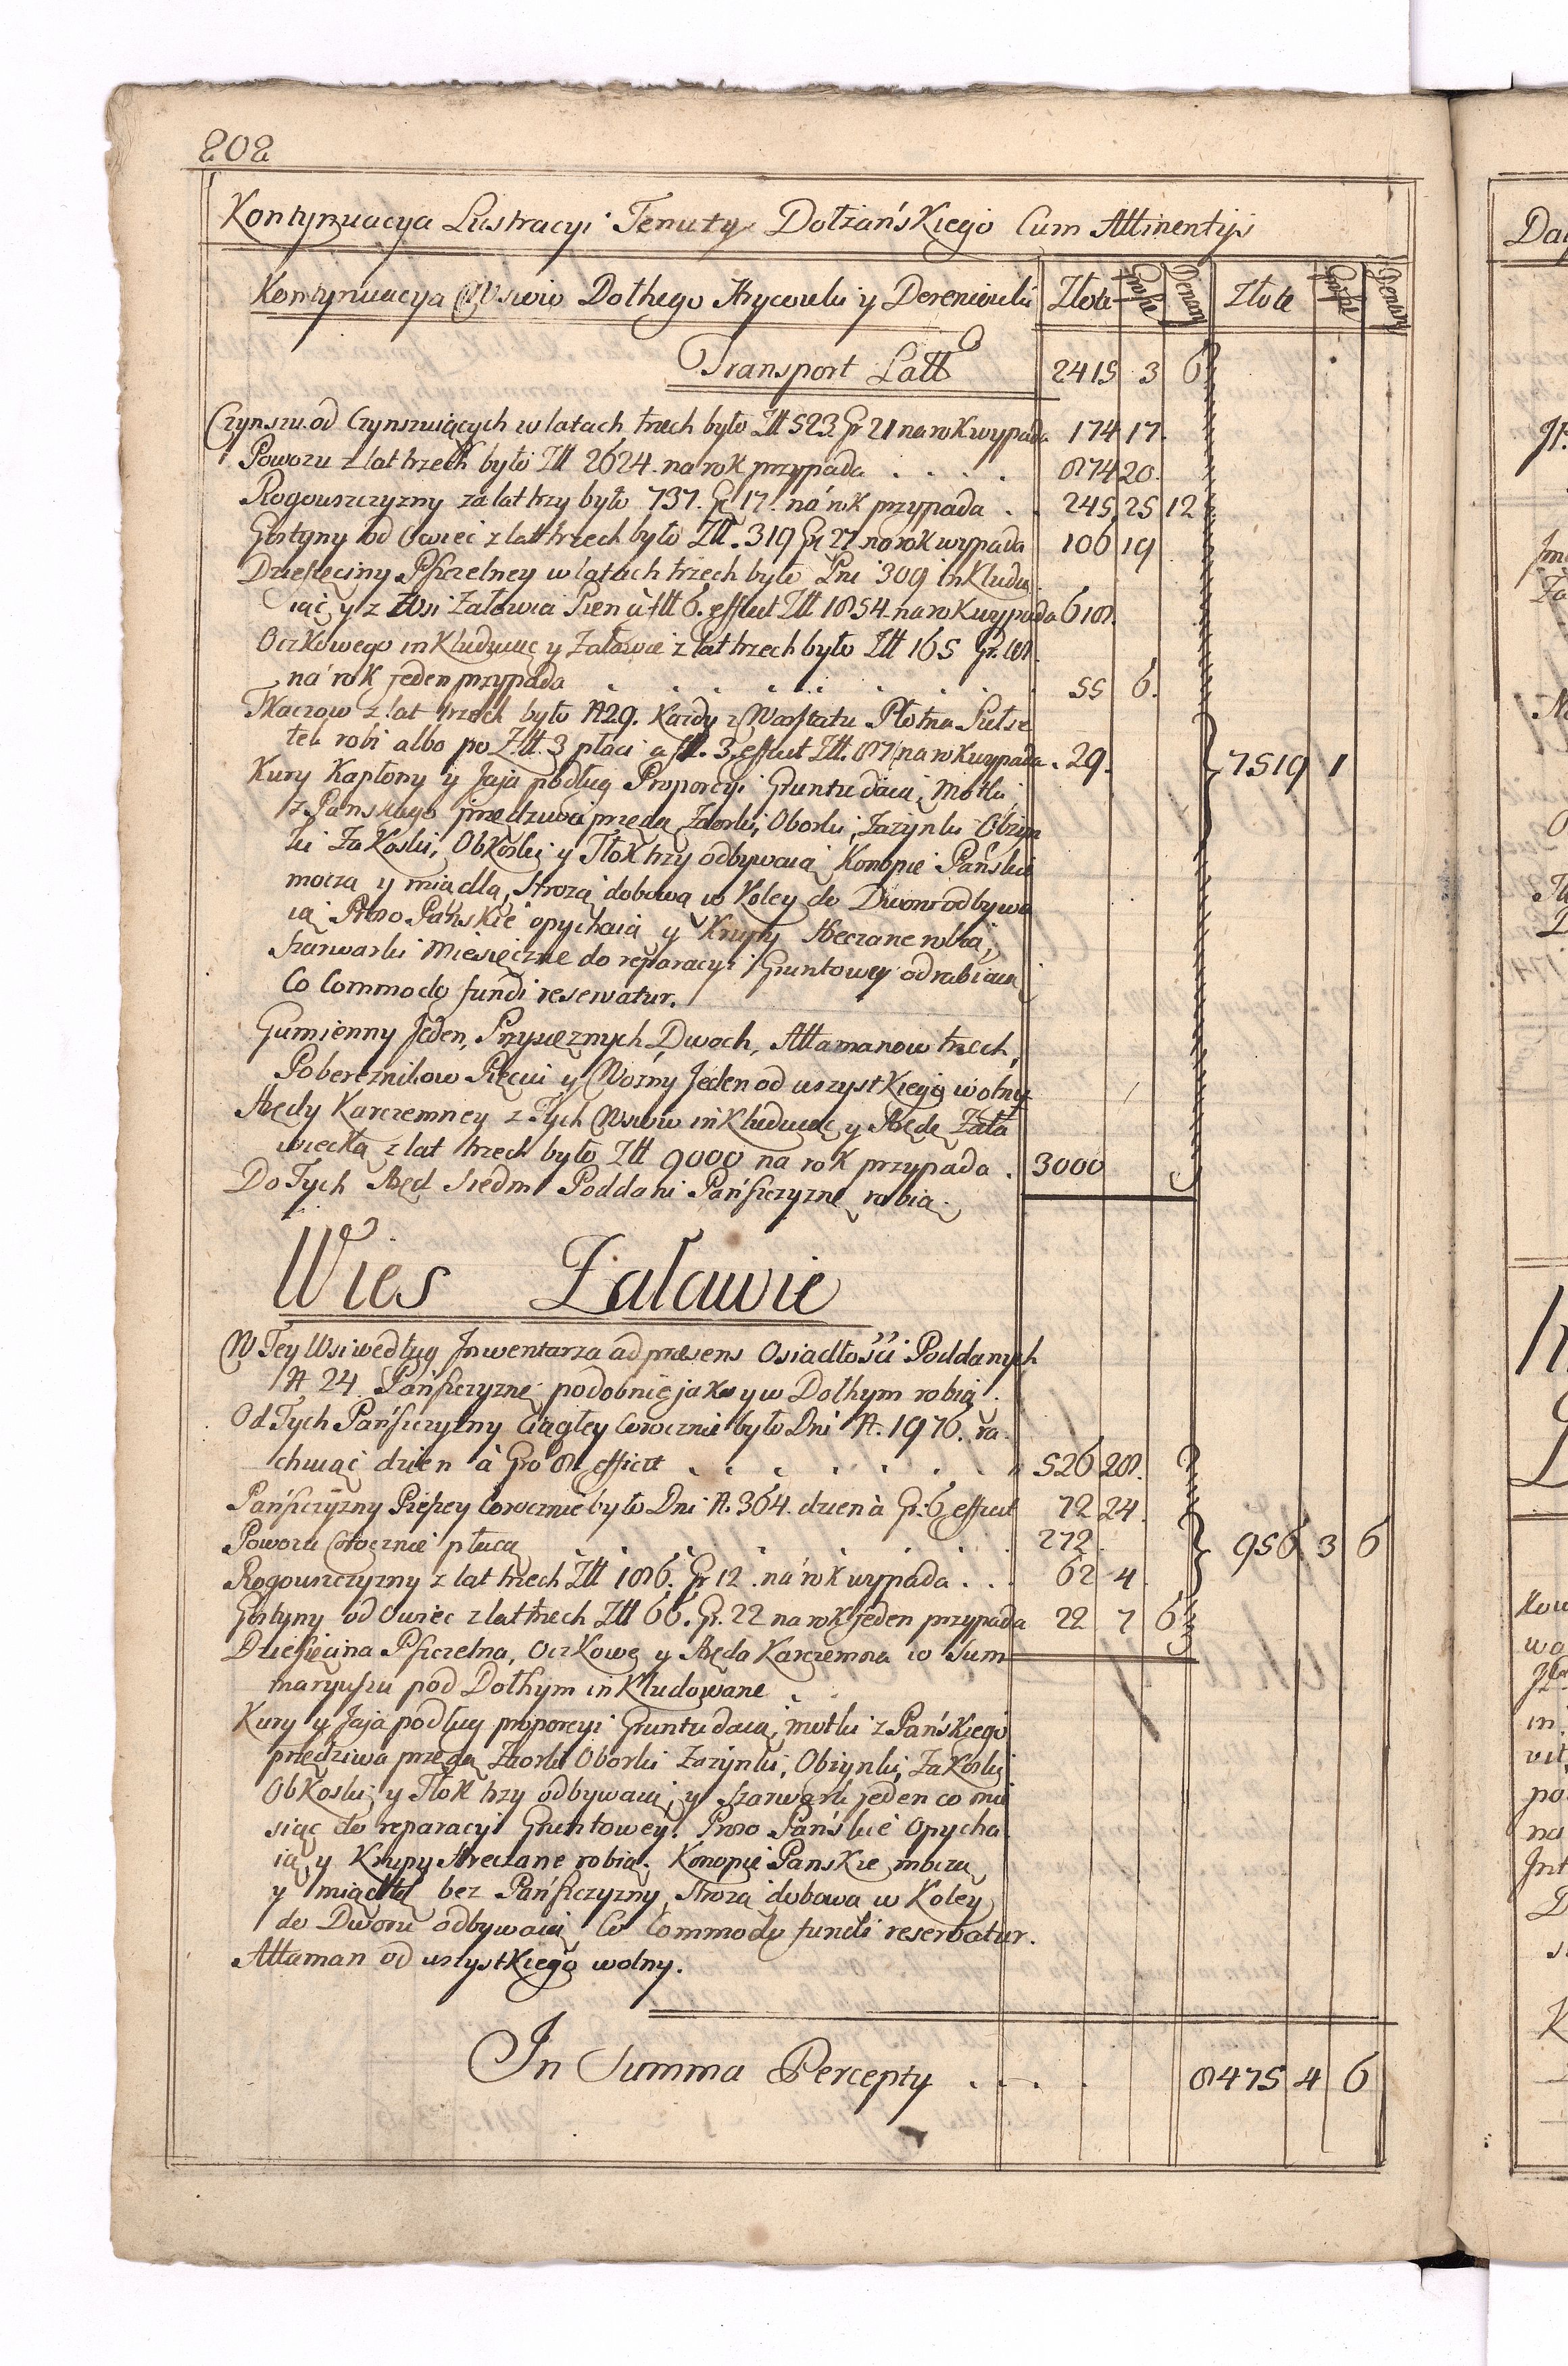 202
Kontynuacya Lustracyi Tenuty Dołzańskiego Cum Attinentijs
Kontynuacya Wsiów Dołhego Hryceulu y Dereniowki Złote Grosze Denary Złote Grosze Denary
Transport Latt 2415 3 6
Czynszu od Czynszuiących w latach trzech było Złł 523 Gr 21 na rok wypada 174 17
Powozu z lat trzech było Złł 2624 na rok przypada 874 20
Rogouszczyzny za lat trzy było 737 Gr 17 na rok przypada 245 25 12
Gostyny od Owiec z lat trzech było Złł. 319 Gr 27 na rok wypada 106 19
Dziesięciny Pszczelney w latach trzech było Pni 309 inkludu
iąc y z Wsi Załawia Pien à fll 6. efficit Złł 1854 na rok wypada 618
Oczkowego inkluduiąc y Załawie z lat trzech było Złł 165 Gr. 18
na rok jeden przypada 55 6.
Tkaczow z lat trzech było N 29. Kazdy z Warsztatu Płotna Pułse
tek robi albo po Złł. 3 płaci a fll. 3. efficit Złł. 87 na rok wypada 29. 7519 1
Kury Kapłony y Jaja podług Proporcyi Gruntu daią, Motki
z Panskiego przędziwa przędą Zaorki, Oborki, Zazynki Obzyn
ki Zakoski, Obkoski y Tłok trzy odbywaią Konopie Pańskie
moczą y miądlą, Strozą dobową w Koley do Dworu odbywa
ią Proso Pańskie opychaią y Krupy Hreczane robią,
Szarwarki Miesięczne do reparacyi Gruntowey odrabiaią
Co Commodo fundi reservatur.
Gumienny Jeden, Przysięznych Dwoch, Attamanow trzech,
Pobereznikow Pięciu y Wozny Jeden od wszystkiego wolny
Arędy Karczemney z Tych Wsiów inkluduiąc y Arędę Zała
wiecką z lat trzech było Złł 9000 na rok przypada 3000
Do Tych Aręd Siedm Poddani Pańszczyznę robią.
Wies Załawie
W Tey Wsi według Inwentarza ad præsens Osiadłości Poddanych
N 24 Pańszczyznę podobnie jako y w Dołhym robią.
Od Tych Pańszczyzny Ciągłey Corocznie było Dni N. 1976. ra
chuiąc dzien à Gro 8 efficit 526 28
Pańszczyzny Pieszey Corocznie było Dni N. 364. dzien à Gr. 6 efficit 72 24
Powozu Corocznie płacą 272 956 3 6
Rogouszczyzny z lat trzech Złł 186. Gr 12 na rok wypada 62 4
Gostyny od Owiec z lat trzech Złł 66. Gr. 22 na rok jeden przypada 22 7 6
Dziesięcina Pszczelna, Oczkowe y Aręda Karczemna w Sum
maryuszu pod Dołhym inkludowane
Kury y Jaja podług proporcyi Gruntu daią, motki z Pańskiego
przędziwa przędą Zaorki Oborki Zazynki, Obzynki, Zakoski
Obkoski y Tłok trzy odbywaią, y Szarwark jeden co mie
siąc do reparacyi Gruntowey. Proso Pańskie Opycha
ią y Krupy Hreczane robią. Konopie Panskie moczą
y miądlą bez Pańszczyzny, Stroza dobowa w Koley
do Dworu odbywaią, Co Commodo fundi reservatur.
Attaman od wszystkiego wolny.
In Summa Percepty 8475 4 6